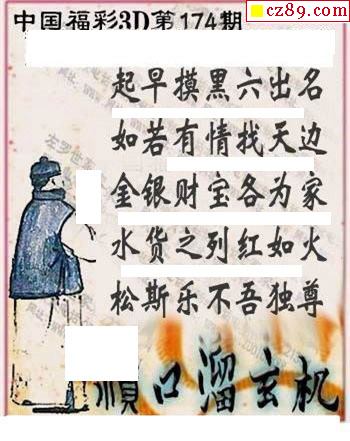 cz89.com
中国福彩3D第174期
起早摸黑六出名
如若有情找天边
金银财宝各为家
水货之列红如火
松斯乐不吾独尊
顺口溜玄机